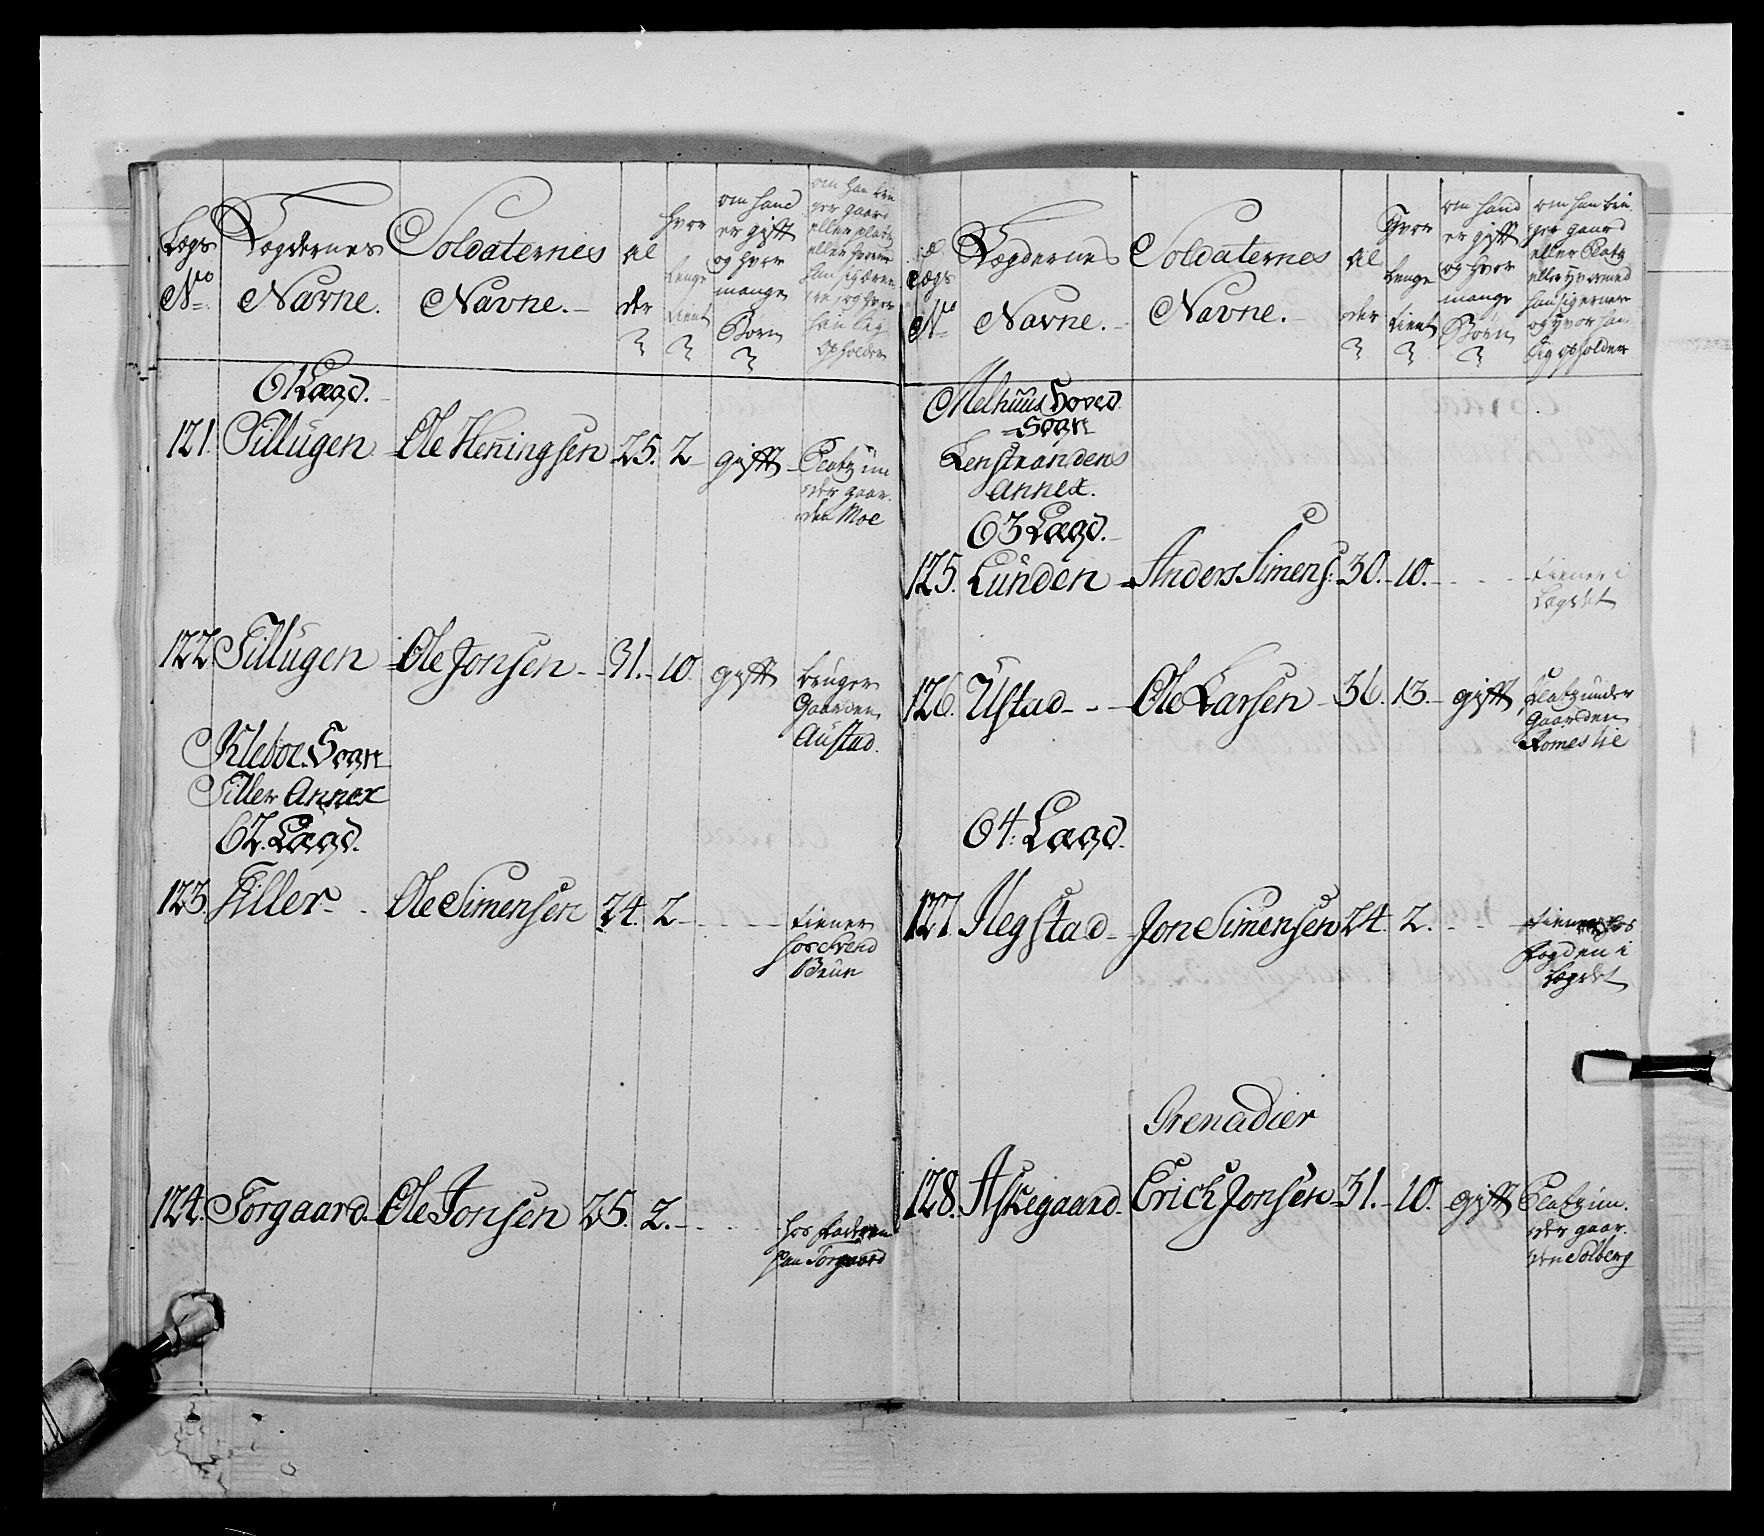 Lægs
No
Lægdernes
Navne.
Soldaternes
Navne.
al
der
hvor
lenge
tient
om hand
er gift
og hvor
mange
Børn
om han bru
ger gaard
eller platz
eller hvor
han sig
opholder
61 Lægd.
121. Tillugen Ole Heningsen 25. 2 gift Platz un
der gaar
den Moe
122 Tillugen Ole Jonsen 31. 10 gift bruger
Gaarden
Austad.
Kleboe Sogn
Tiller Annex
62. Lægd.
123. Tiller Ole Simensen 24. 2 tiener
hos Svend
Brun
124. Torgaard Ole Jonsen 25. 2. hos Faderen
paa Torgaard
Lægs
No
Lægdernes
Navne.
Soldaternes
Navne.
al
der
Hvor
lenge
tient
om hand
er gift
og hvor
mange
Børn
om han bru
ger gaard
eller Platz
eller hvormed
han sig ernerer
og hvor han
sig opholder
Melhuus Hoved
Sogn
Lenstrandens
Annex.
63 Lægd.
125. Lunden Anders Simens: 30. 10. tiener i
Lægdet
126. Ustad Ole Larsen 36. 13. gift Platz under
Gaarden
Romeslie
64. Lægd.
127. Negstad Jon Simensen 24. 2. tiener hos
Fogden i
Lægdet
Grenadier
128. Askegaard Erich Jonsen 31. 10. gift Platz un
der gaar
den Solberg